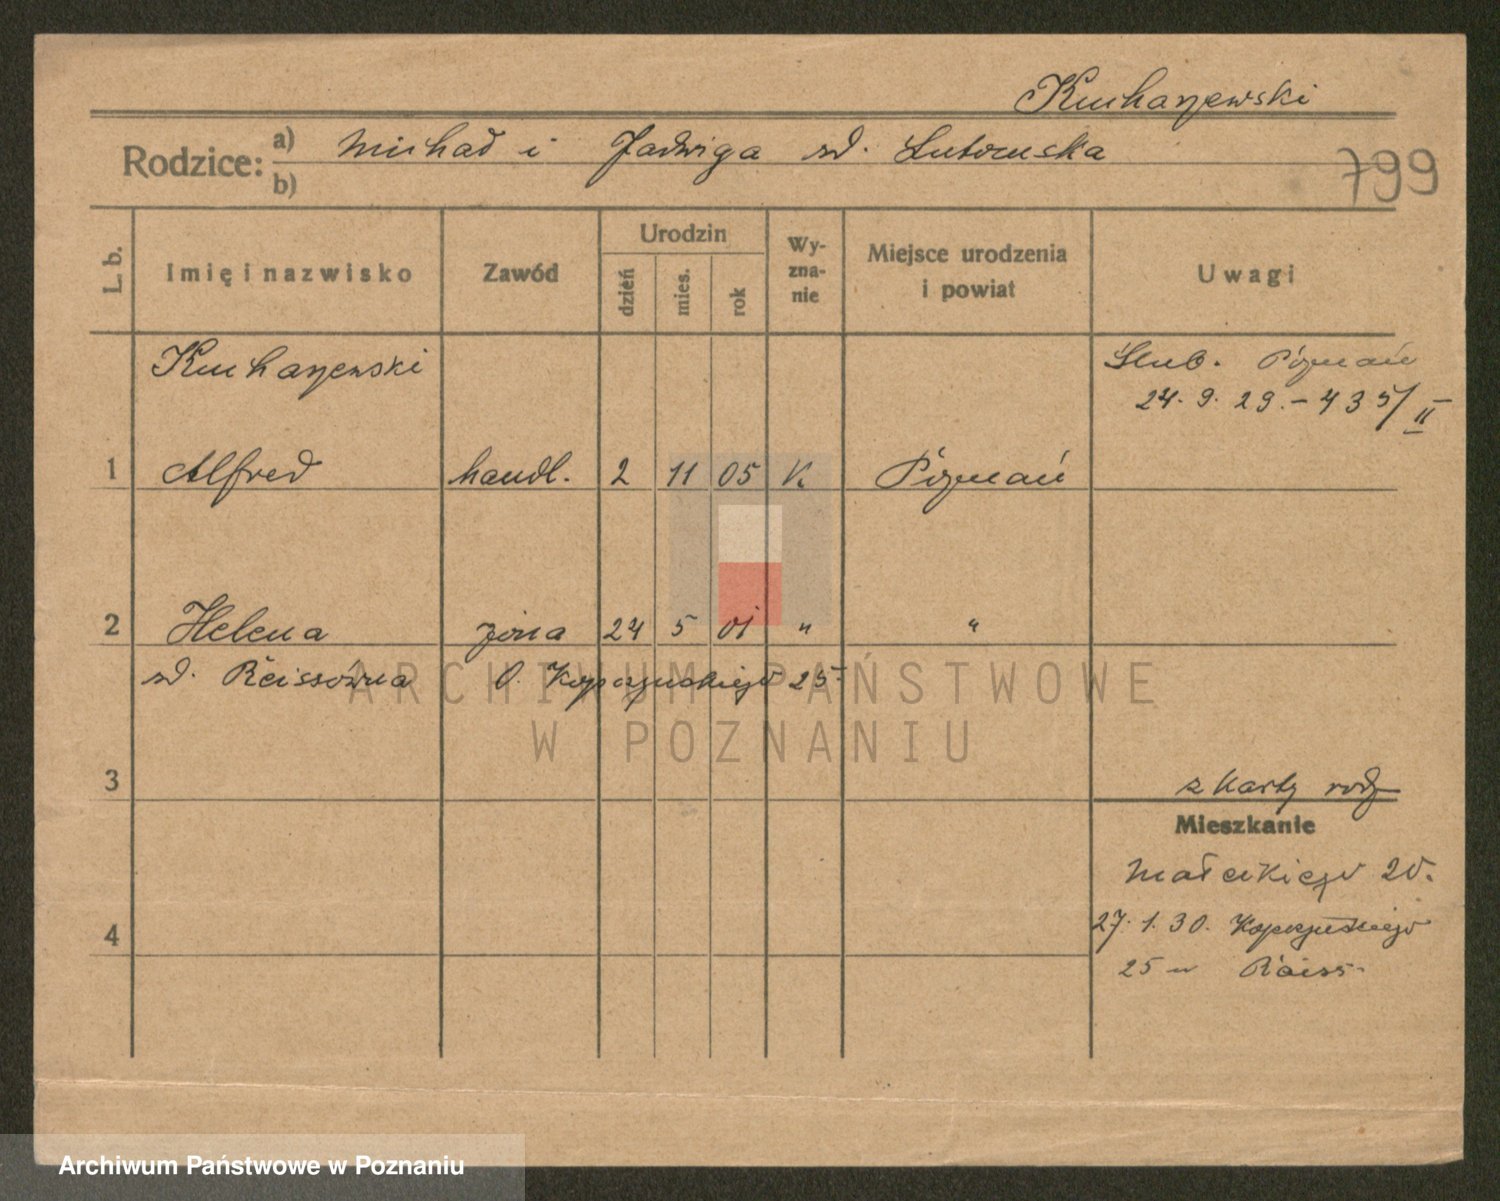 Kucharzewski
Rodzice: a) Michał i Jadwiga zd. Lutomska
b)
799
L. b.
Imię i nazwisko
Zawód
Urodzin
dzień
mies.
rok
Wy-
zna-
nie
Miejsce urodzenia
i powiat
Uwagi
Kucharzewski
Ślub. Poznań
24. 9. 29. – 435/II
1 Alfred handl. 2 11 05 K. Poznań
2 Helena żona 24 5 01 " "
zd. Reissówna O. Kopczyńskiego 25
ARCHIWUM PAŃSTWOWE
W POZNANIU
3
z karty rodz
Mieszkanie
Małeckiego 20.
4
27. 1. 30. Kopczyńskiego
25 u Reiss.
Archiwum Państwowe w Poznaniu